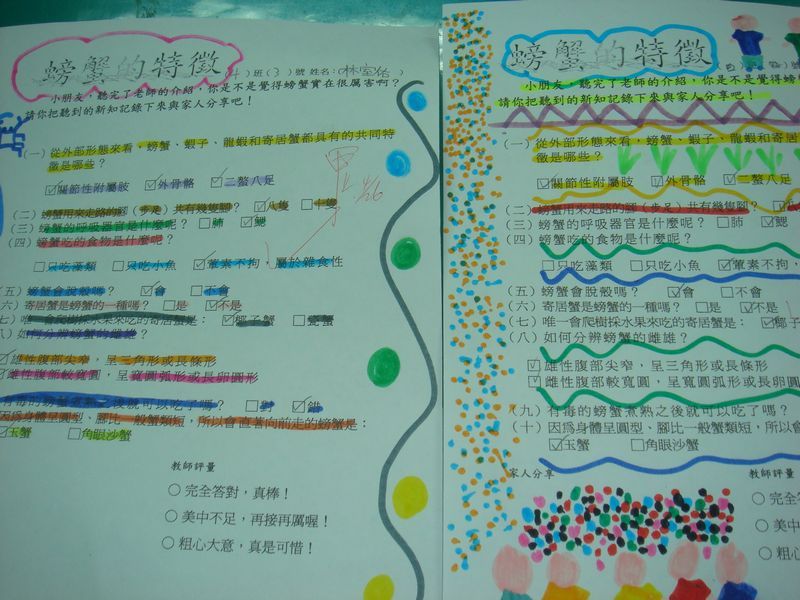 螃蟹的特徵
(4)班(3)號 姓名:(林室佑)
小朋友，聽完了老師的介紹，你是不是覺得螃蟹實在很厲害啊？
請你把聽到的新知記錄下來與家人分享吧！
(一)從外部形態來看，螃蟹、蝦子、龍蝦和寄居蟹都具有的共同特
徵是哪些？
☑關節性附屬肢 ☑外骨骼 ☑二螯八足
(二)螃蟹用來走路的腳（步足）共有幾隻腳？ ☑八隻 □十隻
(三)螃蟹的呼吸器官是什麼呢？ □肺 ☑鰓
(四)螃蟹吃的食物是什麼呢？
□只吃藻類 □只吃小魚 ☑葷素不拘，屬於雜食性
(五)螃蟹會脫殼嗎？ ☑會 □不會
六)寄居蟹是螃蟹的一種嗎？ □是 ☑不是
七)唯一會爬樹採水果來吃的寄居蟹是： ☑椰子蟹 □瓷蟹
八)如何分辨螃蟹的雌雄？
☑雄性腹部尖窄，呈三角形或長條形
☑雌性腹部較寬圓，呈寬圓弧形或長卵圓形
有毒的螃蟹煮熟之後就可以吃了嗎？ □對 ☑錯
因為身體呈圓型、腳比一般蟹類短，所以會直著向前走的螃蟹是：
☑玉蟹 □角眼沙蟹
教師評量
○ 完全答對，真棒！
○ 美中不足，再接再厲喔！
○ 粗心大意，真是可惜！
螃蟹的特徵
小朋友，聽完了老師的介紹，你是不是覺得螃
請你把聽到的新知記錄下來與家人分享吧！
(一)從外部形態來看，螃蟹、蝦子、龍蝦和寄居
徵是哪些？
☑關節性附屬肢 ☑外骨骼 ☑二螯八足
(二)螃蟹用來走路的腳（步足）共有幾隻腳？
(三)螃蟹的呼吸器官是什麼呢？ □肺 ☑鰓
(四)螃蟹吃的食物是什麼呢？
□只吃藻類 □只吃小魚 ☑葷素不拘，
(五)螃蟹會脫殼嗎？ ☑會 □不會
(六)寄居蟹是螃蟹的一種嗎？ □是 ☑不是
(七)唯一會爬樹採水果來吃的寄居蟹是： ☑椰子
(八)如何分辨螃蟹的雌雄？
☑雄性腹部尖窄，呈三角形或長條形
☑雌性腹部較寬圓，呈寬圓弧形或長卵圓
(九)有毒的螃蟹煮熟之後就可以吃了嗎？
(十)因為身體呈圓型、腳比一般蟹類短，所以會
☑玉蟹 □角眼沙蟹
家人分享 教師評量
○ 完全
○ 美中
○ 粗心